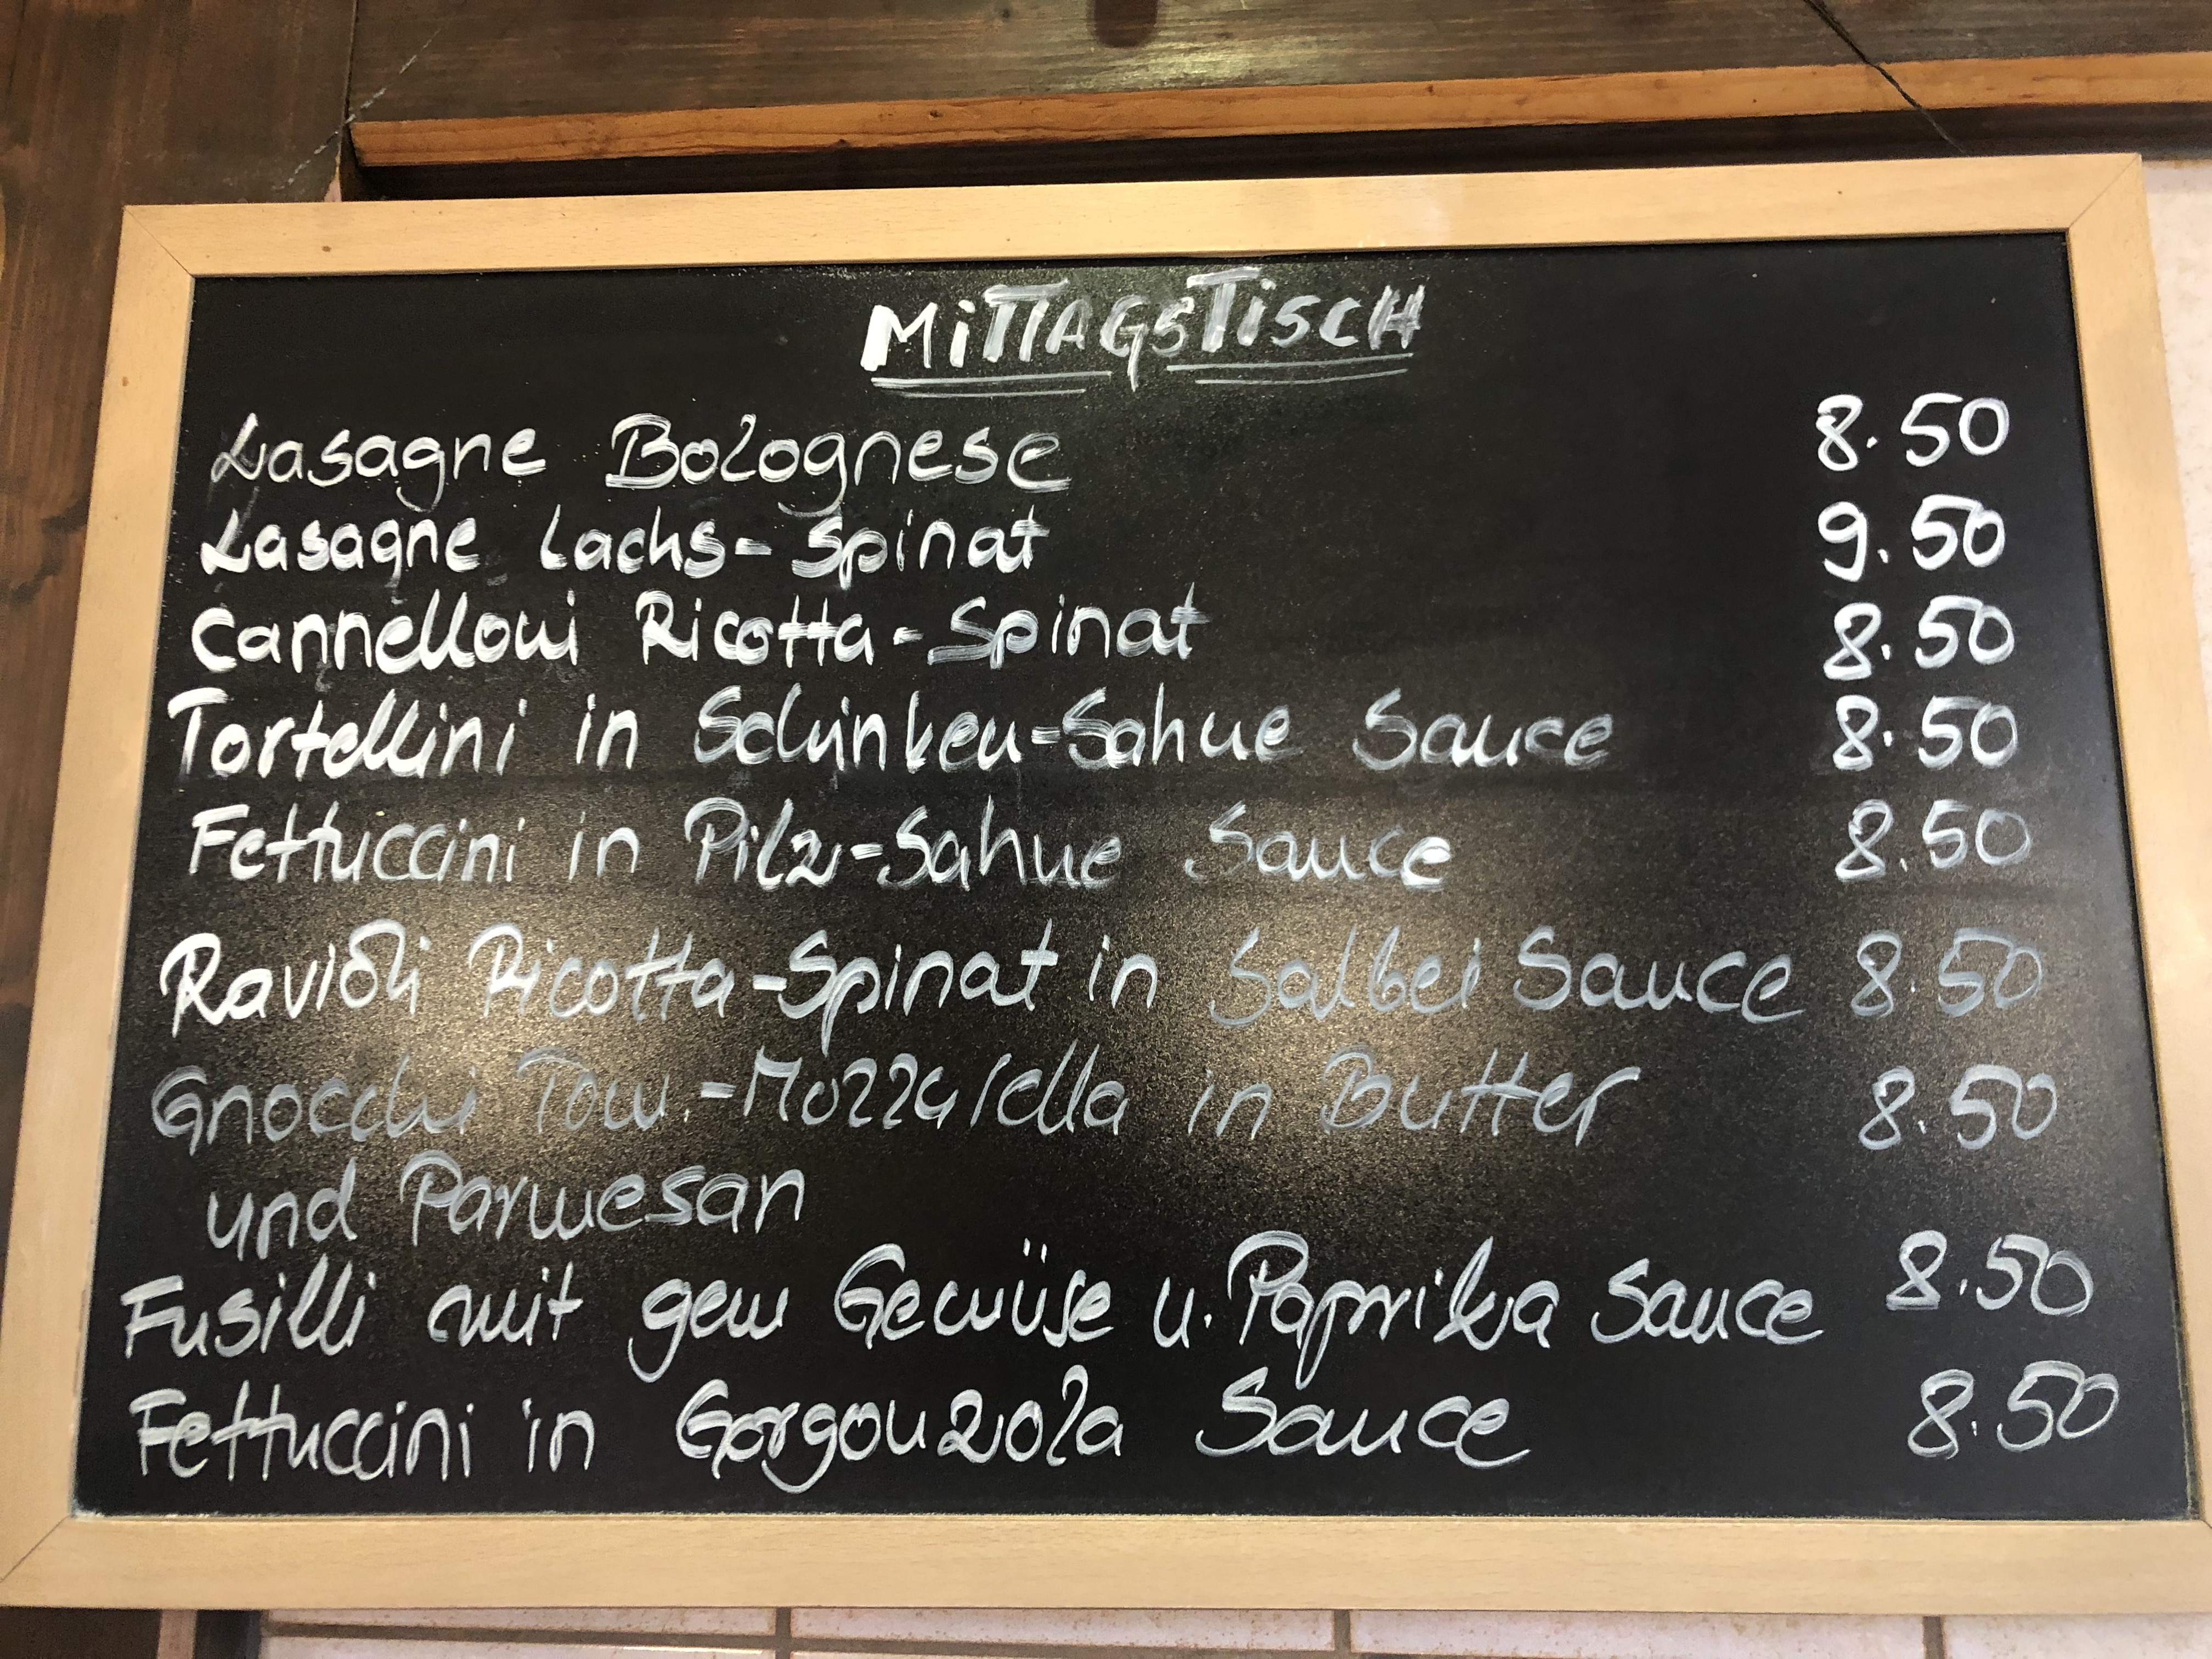 MiTTAGSTiSCH
Lasagne Bolognese 8.50
Lasagne Lachs-Spinat 9.50
Cannelloni Ricotta-Spinat 8.50
Tortellini in Schinken-Sahne Sauce 8.50
Fettuccini in Pilz-Sahne Sauce 8.50
Ravioli Ricotta-Spinat in Salbei Sauce 8.50
Gnocchi Tom.-Mozzarella in Butter 8.50
und Parmesan
Fusilli mit gem Gemüse u. Paprika Sauce 8.50
Fettuccini in Gorgonzola Sauce 8.50